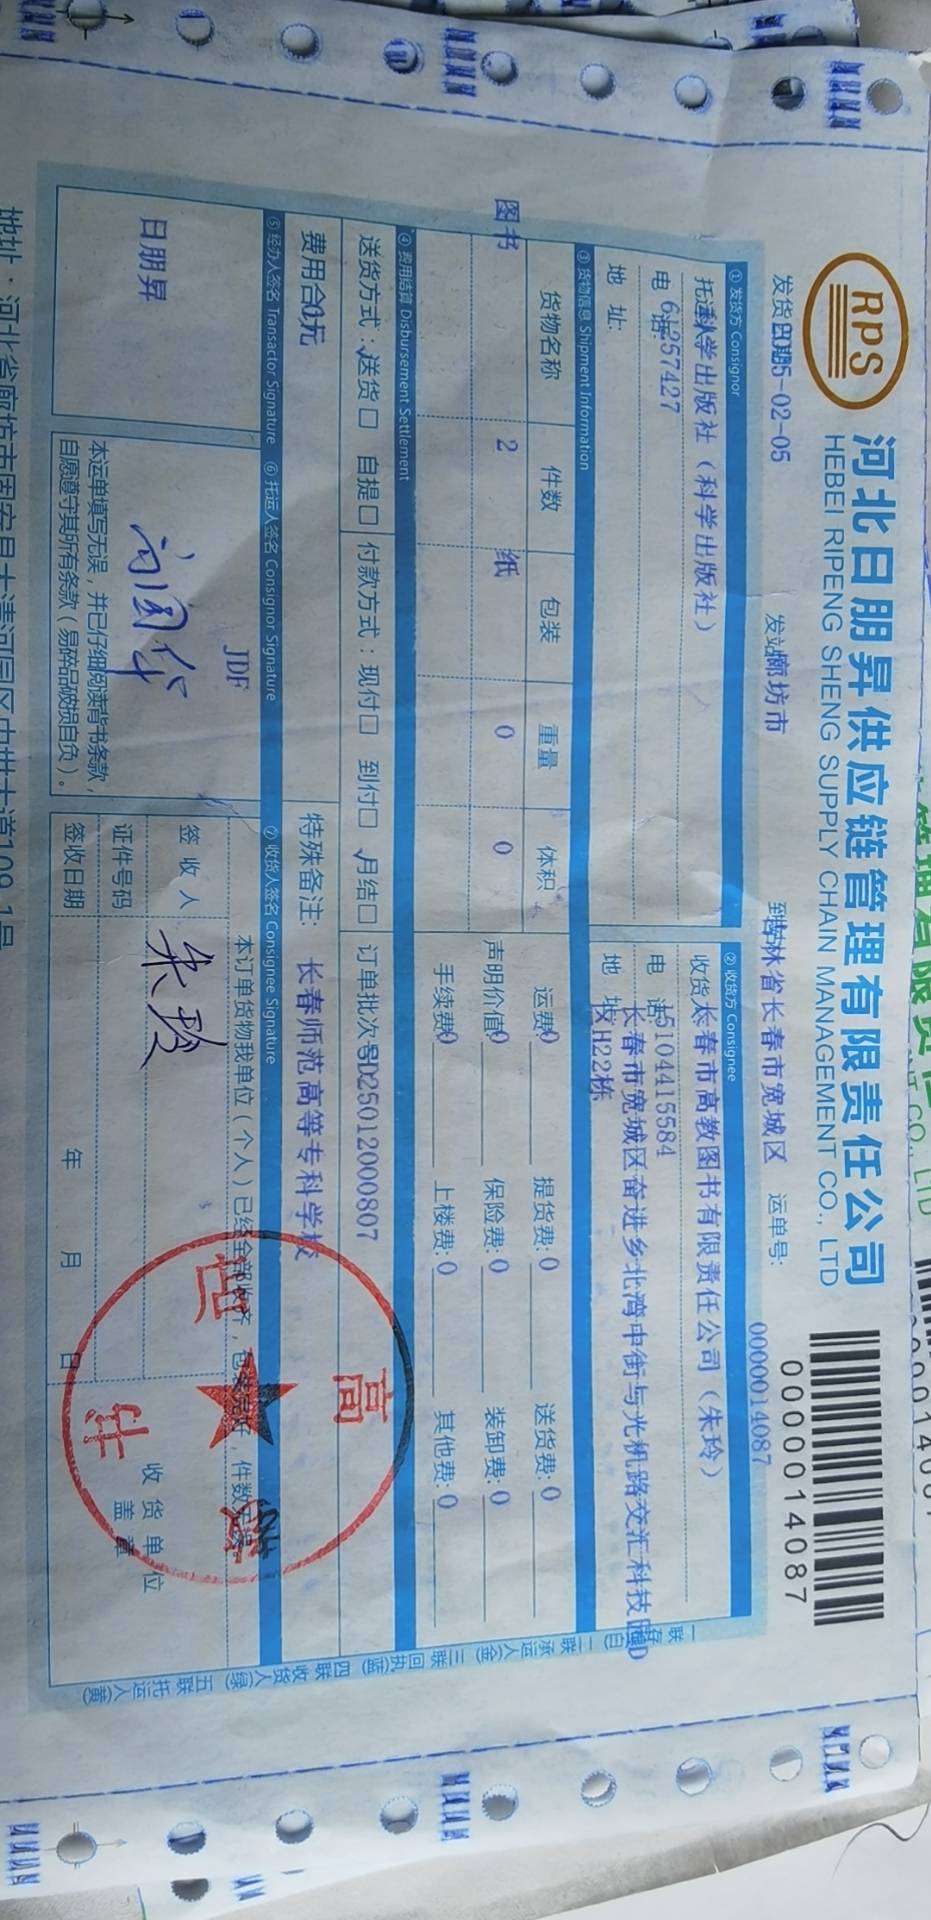 RPS
河北日朋昇供应链管理有限责任公司
HEBEI RIPENG SHENG SUPPLY CHAIN MANAGEMENT CO., LTD
0000014087
发货日期2025-02-05 发站廊坊市 到站吉林省长春市宽城区 运单号: 0000014087
① 发货方 Consignor
托运人科学出版社（科学出版社）
电 话: 61257427
地 址:
② 收货方 Consignee
收货人长春市高教图书有限责任公司（朱玲）
电 话15104415584
地 址长春市宽城区奋进乡北湾中街与光机路交汇科技园D
区H22栋
③ 货物信息 Shipment Information
货物名称 件数 包装 重量 体积
图书 2 纸 0 0
运费0 提货费: 0 送货费: 0
声明价值0 保险费: 0 装卸费: 0
手续费0 上楼费: 0 其他费: 0
④ 费用结算 Disbursement Settlement
送货方式：√送货□ 自提□ 付款方式：现付□ 到付□ √月结□ 订单批次号SD25012000807
费用合0元 特殊备注: 长春师范高等专科学校
⑤ 经办人签名 Transactor Signature
日朋昇
⑥ 托运人签名 Consignor Signature
JDF
本运单填写无误，并已仔细阅读背书条款，
自愿遵守其所有条款（易碎品破损自负）。
⑦ 收货人签名 Consignee Signature
本订单货物我单位（个人）已经全部收齐，包装完好，件数无误。
签 收 人 朱玲
证件号码
签收日期 年 月 日
收 货 单 位
盖 章
高
一联存(白) 二联承运人(金) 三联回执(蓝) 四联收货人(绿) 五联托运人(黄)